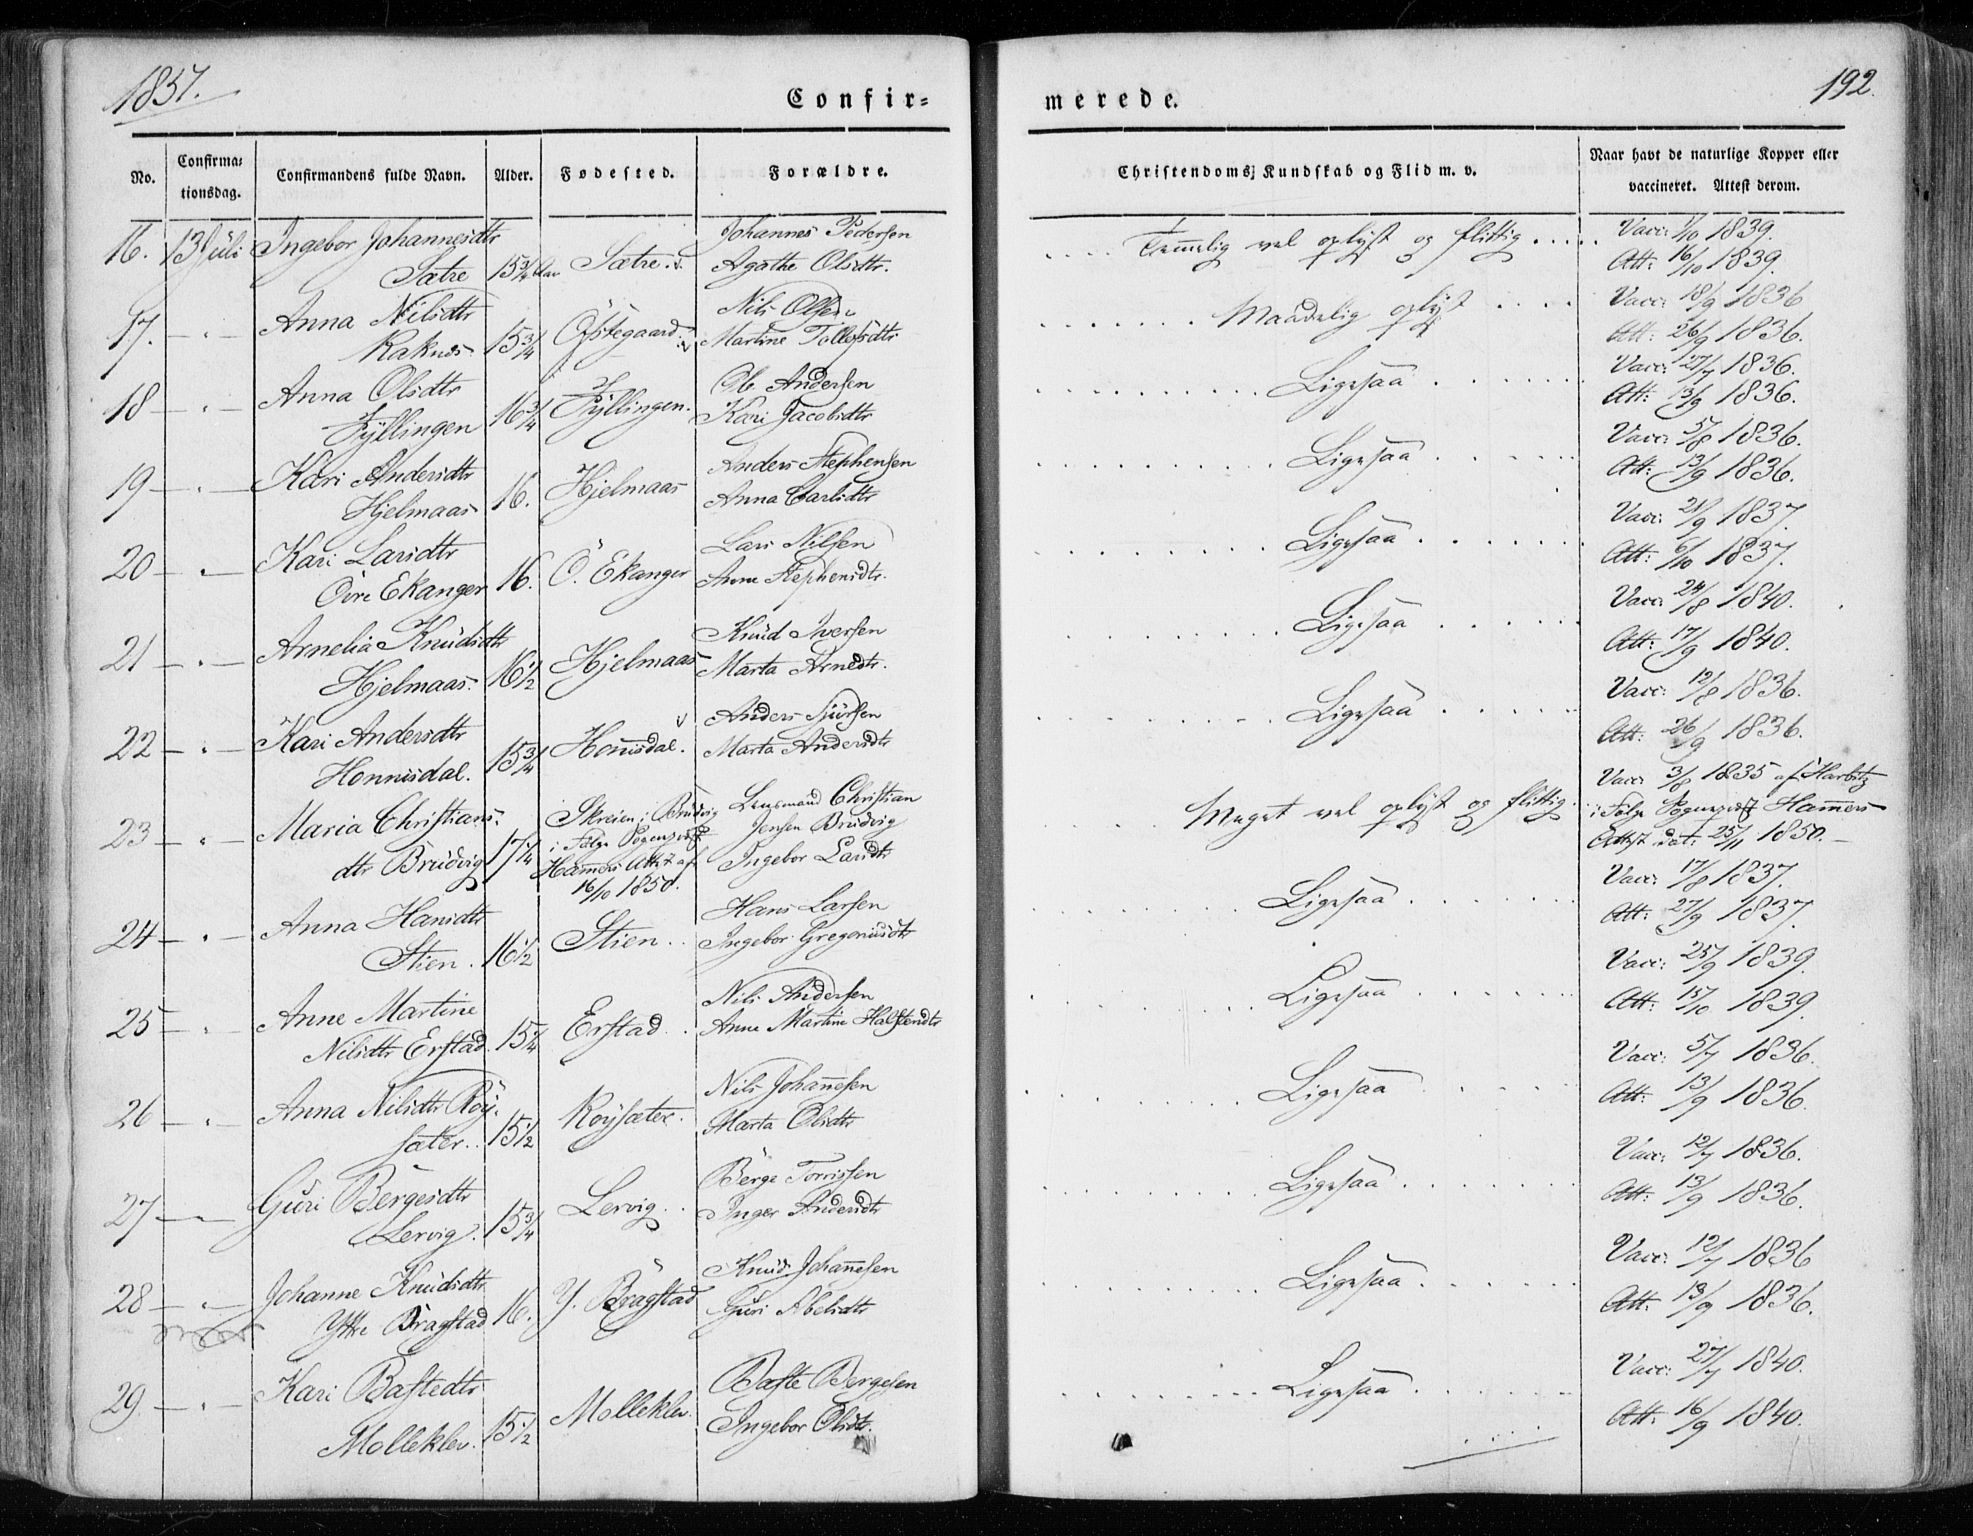 1851.
192.
Confir=
merede.
No.
Confirma=
tionsdag.
Confirmandens fulde Navn.
Alder.
Fødested.
Forældre.
Christendoms-Kundskab og Flid m. v.
Naar havt de naturlige Kopper eller
vaccineret. Attest derom.
16. 13 Juli Ingebor Johannesdtr Johannes Pedersen Temmelig vel oplyst og flittig Vacc: 1/10 1839.
Sætre 15 3/4 Aar Sætre. Agathe Olsdtr. Att: 16/10 1839.
17. — " — Anna Nilsdtr Nils Olsen Maadelig oplyst Vacc: 18/9 1836
Raknes 15 3/4 Ofstegaard Martine Tollefsdtr Att: 26/9 1836.
18 — " — Anna Olsdtr Ole Andersen Ligesaa Vacc: 27/7 1836.
Fyllingen 16 3/4 Fyllingen. Kari Jacobsdtr Att: 13/9 1836.
19 — " — Kari Andersdtr Anders Stephensen Ligesaa Vacc: 5/8 1836.
Hjelmaas 16. Hjelmaas Anna Carlsdtr Att: 13/9 1836.
20 — " — Kari Larsdtr Lars Nilsen Ligesaa Vacc: 21/9 1837.
Övre Ekanger 16. Ö. Ekanger Anna Stephensdtr. Att: 6/10 1837.
21 — " — Arnelia Knudsdtr Knud Iversen Ligesaa Vacc: 24/8 1840.
Hjelmaas. 16 1/2 Hjelmaas Marta Arnedtr. Att: 17/9 1840.
22 — " — Kari Andersdtr Anders Sjursen Ligesaa Vacc: 12/8 1836.
Honnisdal. 15 3/4 Honnisdal. Marta Andersdtr Att: 26/9 1836.
23 " Maria Christians- Skreien i Brudvig Lensmand Christian Meget vel oplyst og flittig. Vacc 3/8 1835 af Harbitz
dtr Brudvig 17 1/4 i Følge Sognepræst Jensen Brudvig i Følge Sognepræst Hammers
Hammers Attest af Ingebor Larsdtr Attest dat. 25/11 1850.
16/10 1850.
24 — " — Anna Hansdtr Hans Larsen Ligesaa Vacc: 17/8 1837.
Stien. 16 1/2 Stien. Ingebor Gregoriusdtr Att: 27/9 1837.
25 — " Anne Martine Nils Andersen Ligesaa Vacc: 25/9 1839.
Nilsdtr Erstad. 15 1/4 Erstad. Anne Martine Halstendtr Att: 15/10 1839.
26 — " — Anna Nilsdtr Röy- Nils Johannesen Ligesaa Vacc: 5/7 1836.
sæter. 15 1/2 Röysæter. Marta Olsdtr Att: 13/9 1836.
27 — Guri Börgesdtr Börge Torrissen Ligesaa Vacc: 12/7 1836.
Lervig. 15 3/4 Lervig. Inger Andersdtr Att: 13/9 1836.
28 — " — Johanne Knudsdtr Knud Johannesen Ligesaa Vacc: 12/7 1836
Yttre Bragstad 16. Y. Bragstad Guri Abelsdtr Att: 13/9 1836.
29 — " — Kari Bastedtr Baste Bergesen Ligesaa Vacc: 27/7 1840.
Mölleklev. 15 1/2 Molleklev. Ingebor Olsdtr. Att: 16/9 1840.